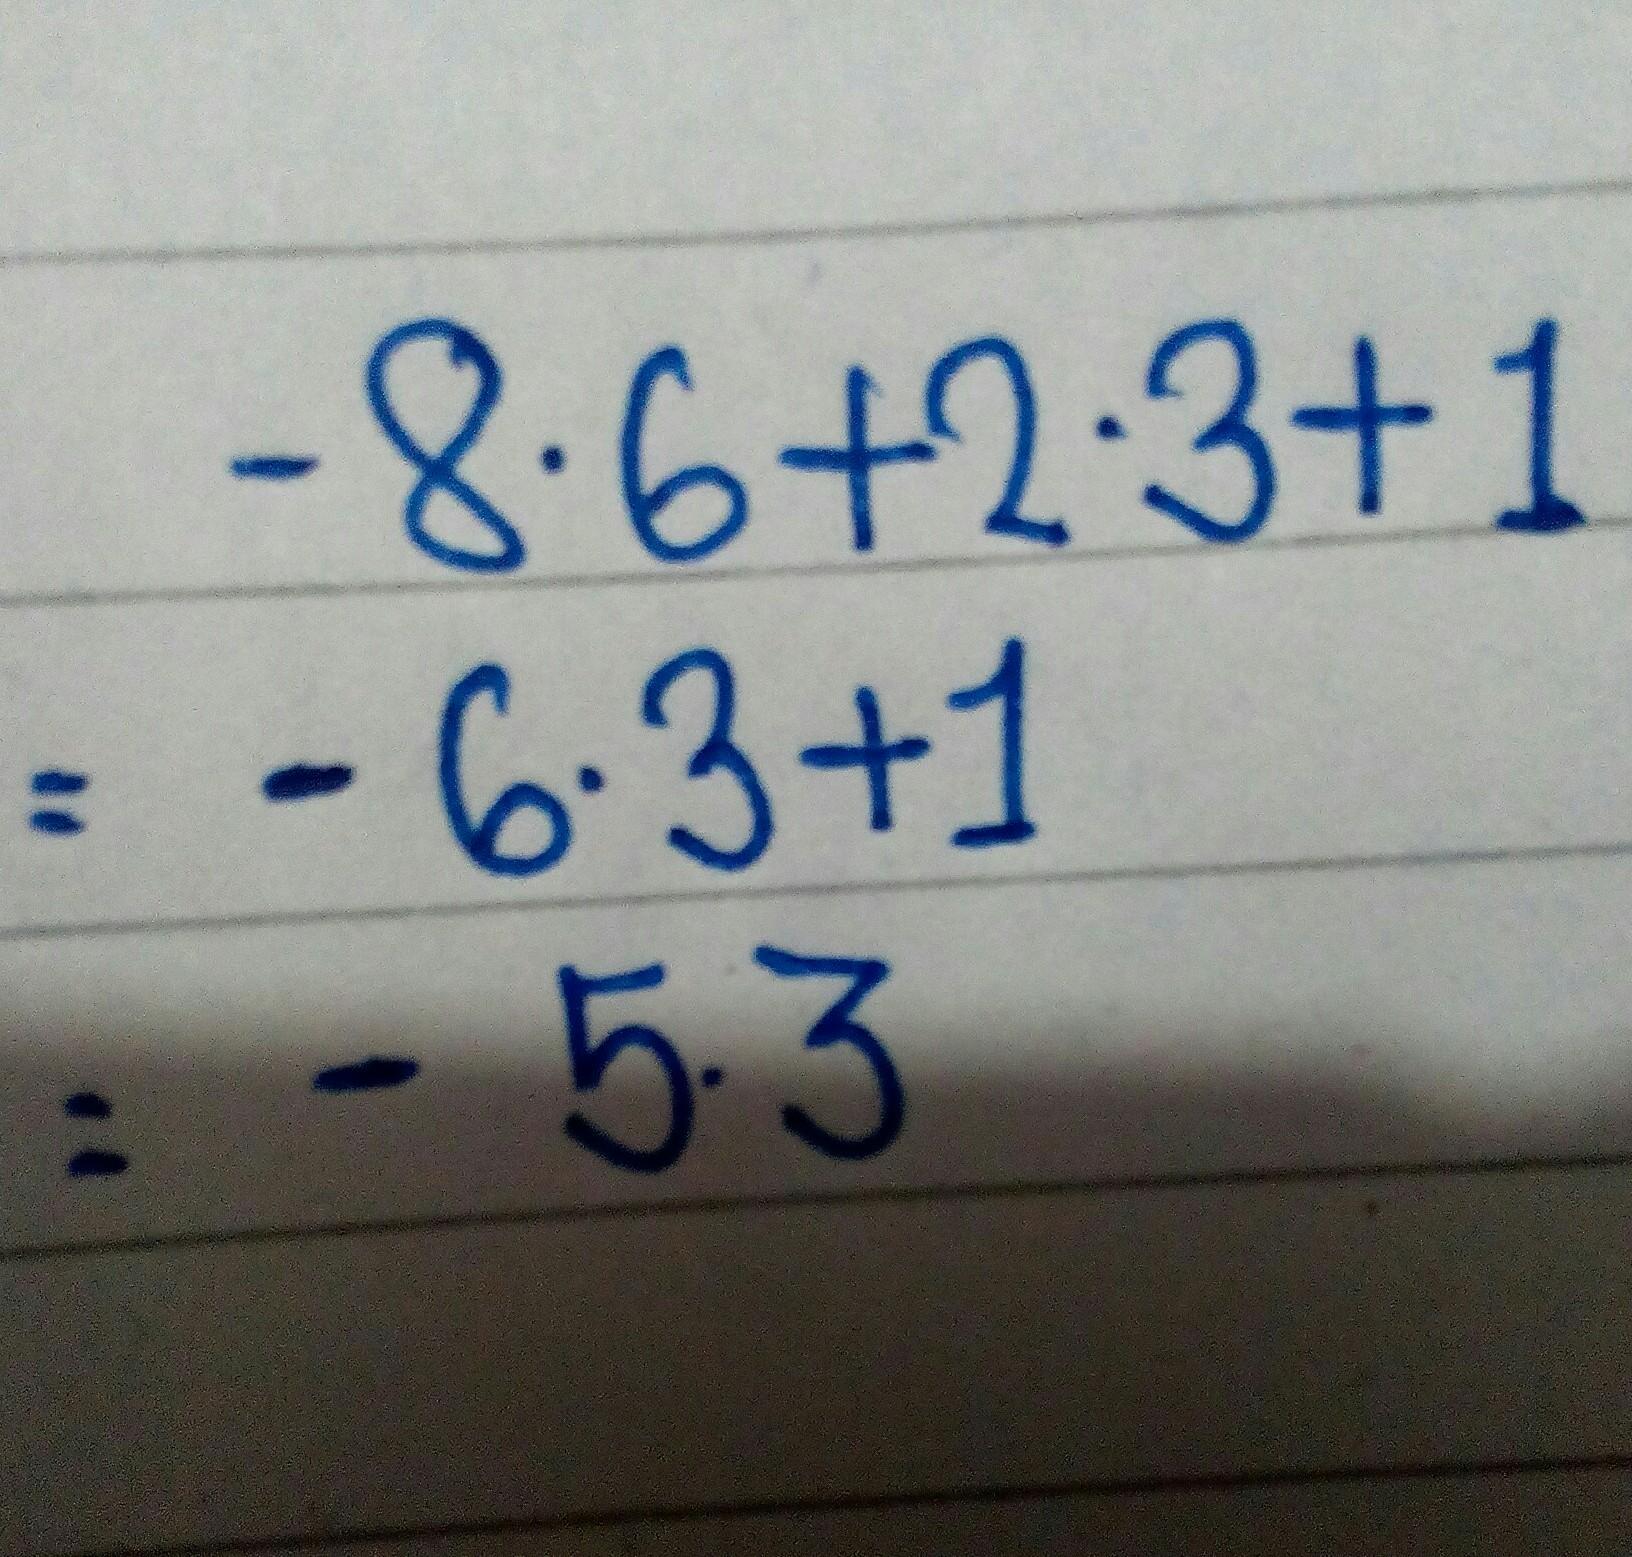 -8.6+2.3+1
= -6.3+1
= -5.3